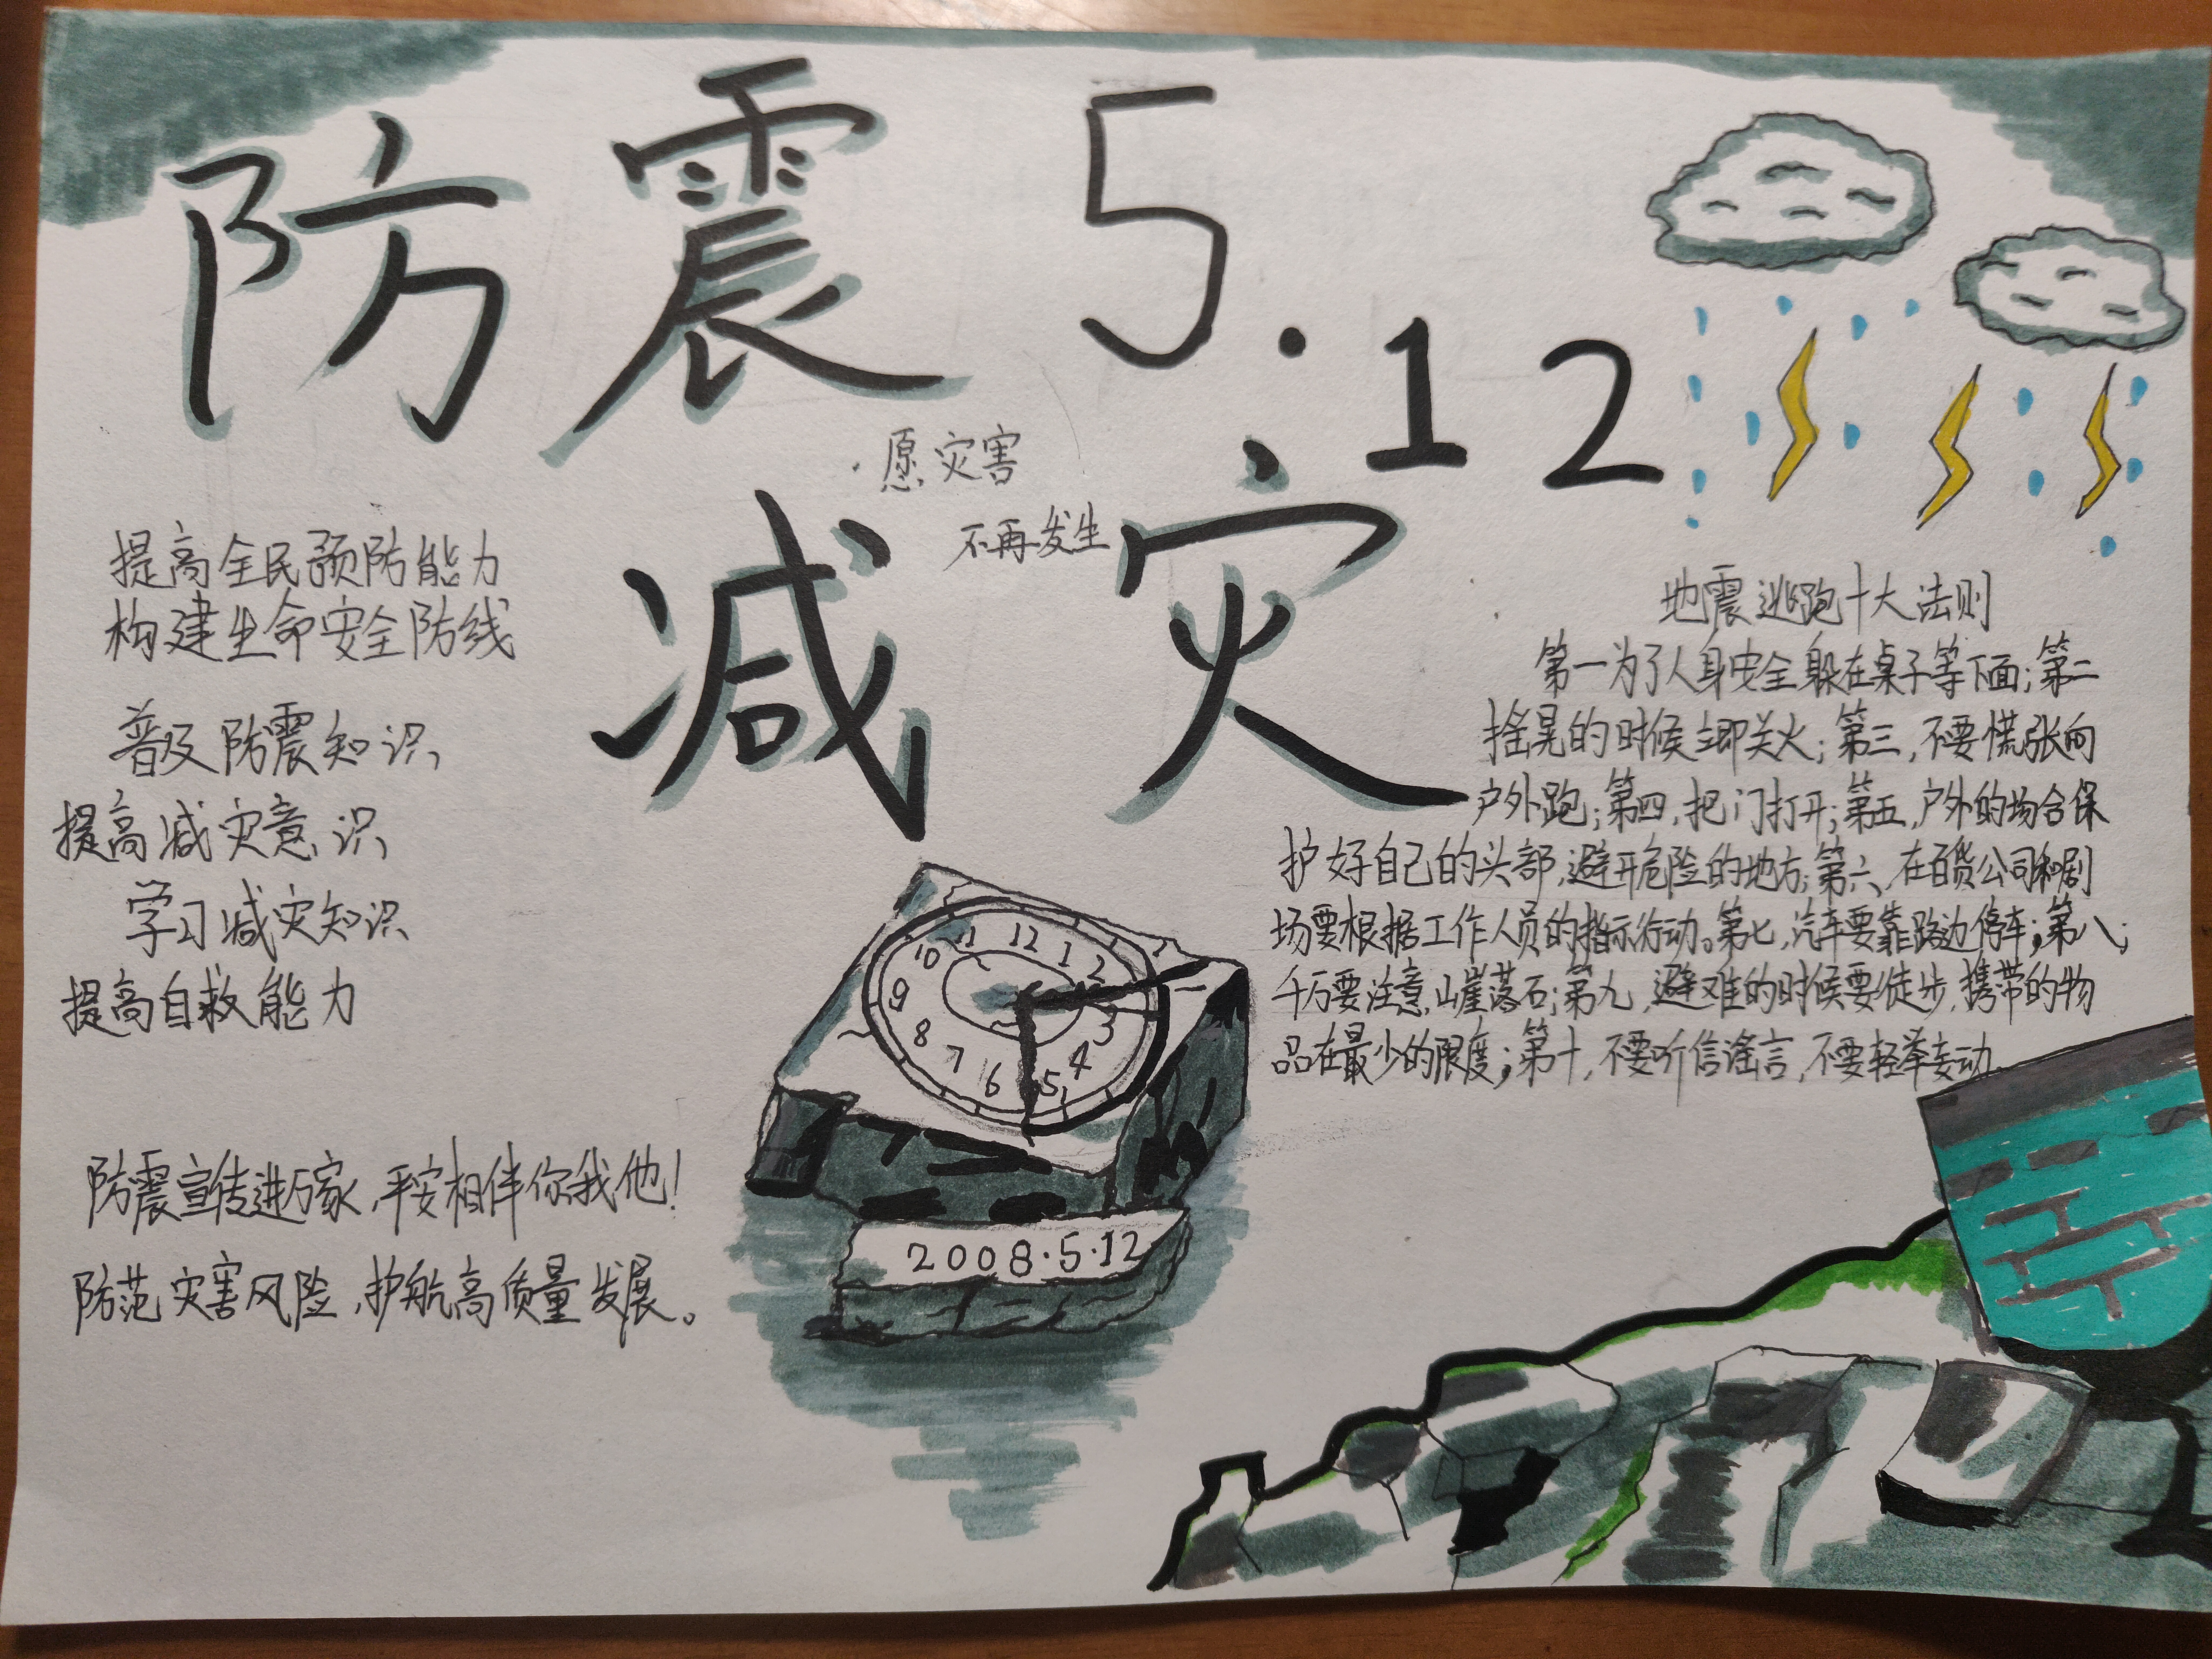 防震 5.12
减灾
愿灾害
不再发生
提高全民预防能力
构建生命安全防线
普及防震知识
提高减灾意识
学习减灾知识
提高自救能力
防震宣传进万家,平安相伴你我他!
防范灾害风险,护航高质量发展。
地震逃跑十大法则
第一为了人身安全躲在桌子等下面;第二
摇晃的时候立即关火;第三,不要慌张向
户外跑;第四,把门打开;第五,户外的场合保
护好自己的头部,避开危险的地方;第六,在百货公司和剧
场要根据工作人员的指示行动。第七,汽车要靠路边停车;第八,
千万要注意,山崖落石;第九,避难的时候要徒步,携带的物
品在最少的限度;第十,不要听信谣言,不要轻举妄动。
11 12 1
10 2
9 3
8 4
7 6 5
2008·5·12